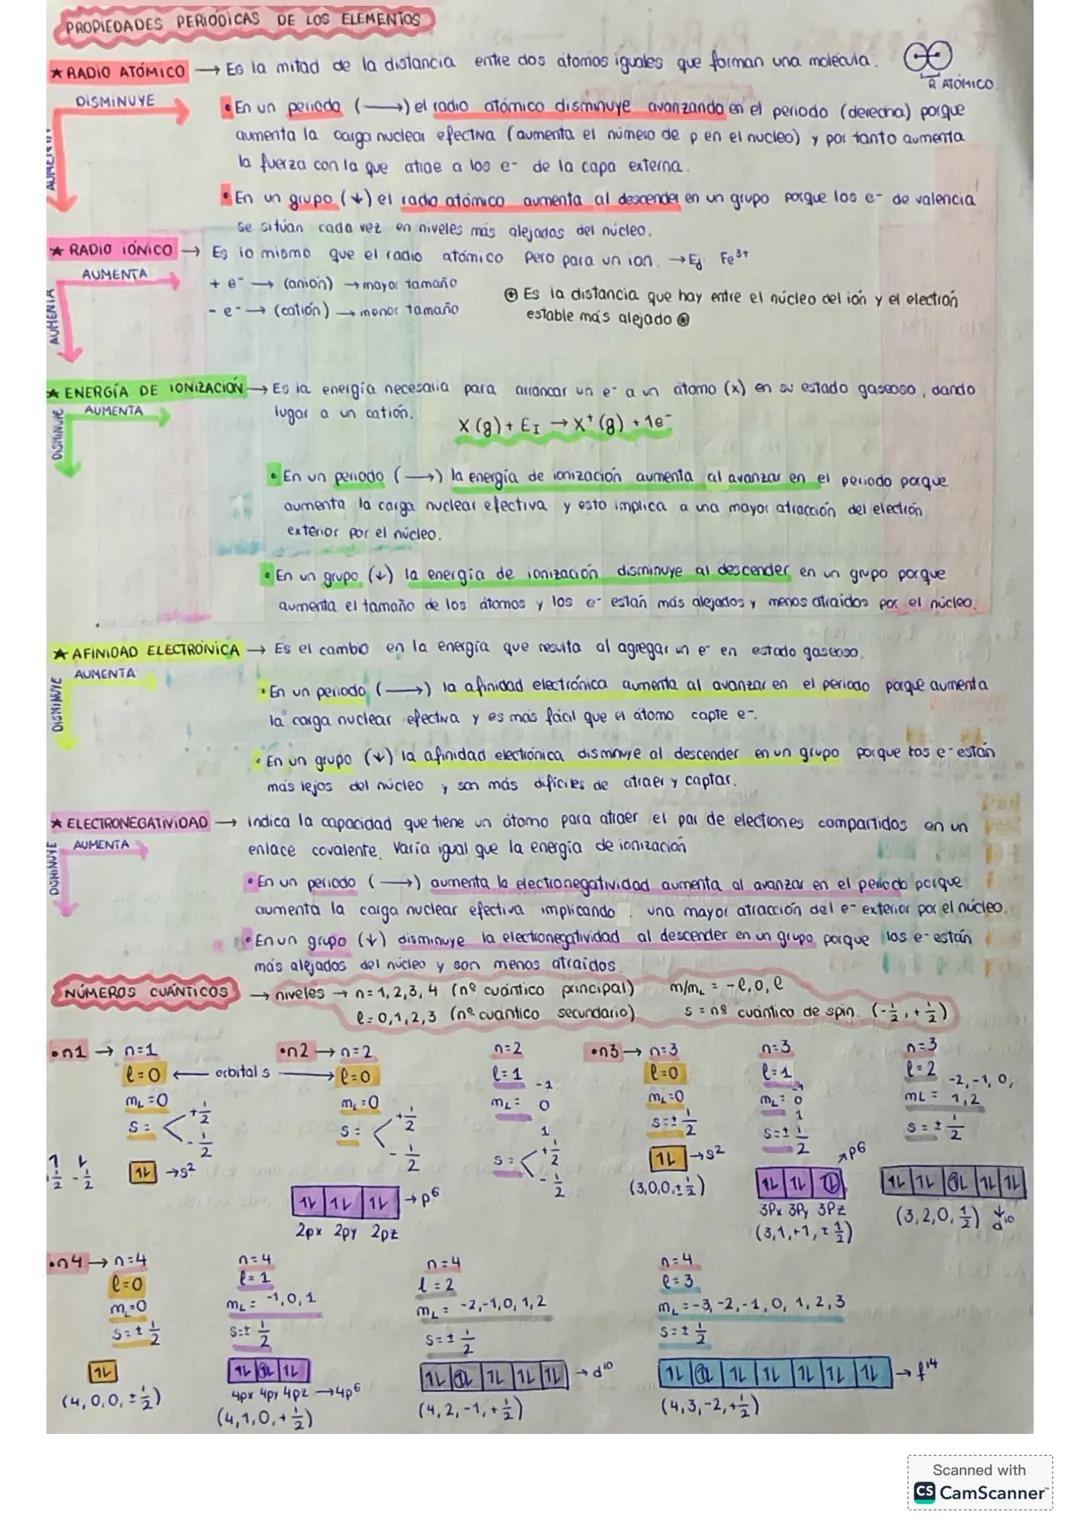 PROPIEDADES PERIÓDICAS DE LOS ELEMENTOS
★ RADIO ATÓMICO → Es la mitad de la distancia entre dos átomos iguales que forman una molécula.
R ATÓMICO
DISMINUYE
AUMENTA
• En un periodo (→) el radio atómico disminuye avanzando en el periodo (derecha) porque
aumenta la carga nuclear efectiva (aumenta el número de p en el nucleo) y por tanto aumenta
la fuerza con la que atrae a los e- de la capa externa.
• En un grupo (↓) el radio atómico aumenta al descender en un grupo porque los e- de valencia
se sitúan cada vez en niveles más alejados del núcleo.
★ RADIO IÓNICO → Es lo mismo que el radio atómico pero para un ion. → Ej Fe³⁺
AUMENTA
AUMENTA
+ e⁻ → (anión) → mayor tamaño
- e⁻ → (catión) → menor tamaño
Es la distancia que hay entre el núcleo del ión y el electrón
estable más alejado
★ ENERGÍA DE IONIZACIÓN → Es la energía necesaria para arrancar un e- a un átomo (x) en su estado gaseoso, dando
lugar a un catión.
AUMENTA
DISMINUYE
X (g) + E_I → X⁺ (g) + 1e⁻
• En un periodo (→) la energía de ionización aumenta al avanzar en el periodo porque
aumenta la carga nuclear efectiva y esto implica a una mayor atracción del electrón
exterior por el núcleo.
• En un grupo (↓) la energía de ionización disminuye al descender en un grupo porque
aumenta el tamaño de los átomos y los e- están más alejados y menos atraídos por el núcleo.
★ AFINIDAD ELECTRÓNICA → Es el cambio en la energía que resulta al agregar un e- en estado gaseoso.
AUMENTA
DISMINUYE
• En un periodo (→) la afinidad electrónica aumenta al avanzar en el periodo porque aumenta
la carga nuclear efectiva y es más fácil que el átomo capte e-.
• En un grupo (↓) la afinidad electrónica disminuye al descender en un grupo porque los e- están
más lejos del núcleo y son más difíciles de atraer y captar.
★ ELECTRONEGATIVIDAD → indica la capacidad que tiene un átomo para atraer el par de electrones compartidos en un
enlace covalente. Varía igual que la energía de ionización
AUMENTA
DISMINUYE
• En un periodo (→) aumenta la electronegatividad aumenta al avanzar en el periodo porque
aumenta la carga nuclear efectiva implicando una mayor atracción del e- exterior por el núcleo.
• En un grupo (↓) disminuye la electronegatividad al descender en un grupo porque los e- están
más alejados del núcleo y son menos atraídos.
NÚMEROS CUÁNTICOS → niveles → n = 1, 2, 3, 4 (nº cuántico principal) m/m_L = -l, 0, l
l = 0, 1, 2, 3 (nº cuántico secundario) s = nº cuántico de spin. (-1/2, +1/2)
• n1 → n=1
l=0 ← orbital s →
m_L=0
s: +1/2 -1/2
1/2 -1/2
1L → s²
• n2 → n=2
l=0
m_L=0
s: +1/2 -1/2
n=2
l=1
m_L: -1 0 1
s: +1/2 -1/2
1L 1L 1L → p⁶
2px 2py 2pz
• n3 → n=3
l=0
m_L=0
s=±1/2
1L → s²
(3,0,0,±1/2)
n=3
l=1
m_L: -1 0 1
s=±1/2
1L 1L 1L → p⁶
3Px 3Py 3Pz
(3,1,+1,±1/2)
n=3
l=2
mL = -2,-1,0, 1,2
s=±1/2
1L 1L 1L 1L 1L
(3,2,0,1/2) d¹⁰
• n4 → n=4
l=0
m_L=0
s=±1/2
1L
(4,0,0,±1/2)
n=4
l=1
m_L = -1,0,1
s=±1/2
1L 1L 1L
4px 4py 4pz → 4p⁶
(4,1,0,+1/2)
n=4
l=2
m_L = -2,-1,0,1,2
s=±1/2
1L 1L 1L 1L 1L → d¹⁰
(4,2,-1,+1/2)
n=4
l=3
m_L = -3,-2,-1,0,1,2,3
s=±1/2
1L 1L 1L 1L 1L 1L 1L → f¹⁴
(4,3,-2,+1/2)
Scanned with
CS CamScanner